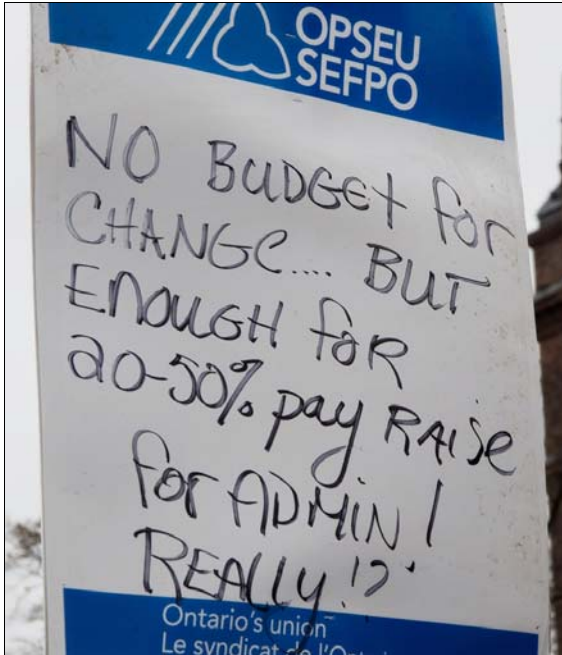 OPSEU
SEFPO
NO BUDGET for
CHANGE.... BUT
ENOUGH foR
20-50% pay RAiSe
for ADMIN!
REALLY!?
Ontario's union
Le syndicat de l'Ont